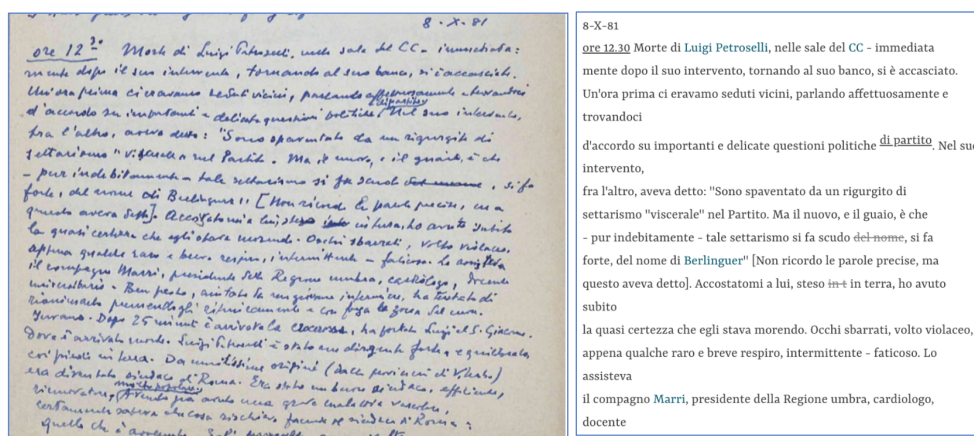 8-X-81
ore 12.30 Morte di Luigi Petroselli, nelle sale del CC - immediata=
mente dopo il suo intervento, tornando al suo banco, si è accasciato.
Un'ora prima ci eravamo seduti vicini, parlando affettuosamente e trovandoci
d'accordo su importanti e delicate questioni politiche di partito. Nel suo intervento,
fra l'altro, aveva detto: "Sono spaventato da un rigurgito di
settarismo "viscerale" nel Partito. Ma il nuovo, e il guaio, è che
- pur indebitamente - tale settarismo si fa scudo del nome, si fa
forte, del nome di Berlinguer". [Non ricordo le parole precise, ma
questo aveva detto]. Accostatomi a lui, steso in t in terra, ho avuto subito
la quasi certezza che egli stava morendo. Occhi sbarrati, volto violaceo,
appena qualche raro e breve respiro, intermittente - faticoso. Lo assisteva
il compagno Marri, presidente della Regione umbra, cardiologo, docente
universitario. Ben presto, aiutato da un giovane infermiere, ha tentato di
rianimarlo premendogli ritmicamente e con foga la zona del cuore.
Invano. Dopo 25 minuti è arrivata la ha portato Luigi al S. Giacomo.
Dove è arrivato morto. Luigi Petroselli è stato un dirigente forte e equilibrato
coi piedi in terra. Da umilissime origini (dalla provincia di Viterbo)
era divenuto sindaco di Roma. Era stato un buon sindaco, efficiente,
rinnovatore, molto popolare. Avendo già avuto una grave malattia vascolare,
certamente sapeva che cosa rischiava facendo il sindaco di Roma:
quello che è avvenuto.
8-X-81
ore 12.30 Morte di Luigi Petroselli, nelle sale del CC - immediata
mente dopo il suo intervento, tornando al suo banco, si è accasciato.
Un'ora prima ci eravamo seduti vicini, parlando affettuosamente e
trovandoci
d'accordo su importanti e delicate questioni politiche di partito. Nel suo
intervento,
fra l'altro, aveva detto: "Sono spaventato da un rigurgito di
settarismo "viscerale" nel Partito. Ma il nuovo, e il guaio, è che
- pur indebitamente - tale settarismo si fa scudo del nome, si fa
forte, del nome di Berlinguer" [Non ricordo le parole precise, ma
questo aveva detto]. Accostatomi a lui, steso in t in terra, ho avuto
subito
la quasi certezza che egli stava morendo. Occhi sbarrati, volto violaceo,
appena qualche raro e breve respiro, intermittente - faticoso. Lo
assisteva
il compagno Marri, presidente della Regione umbra, cardiologo,
docente